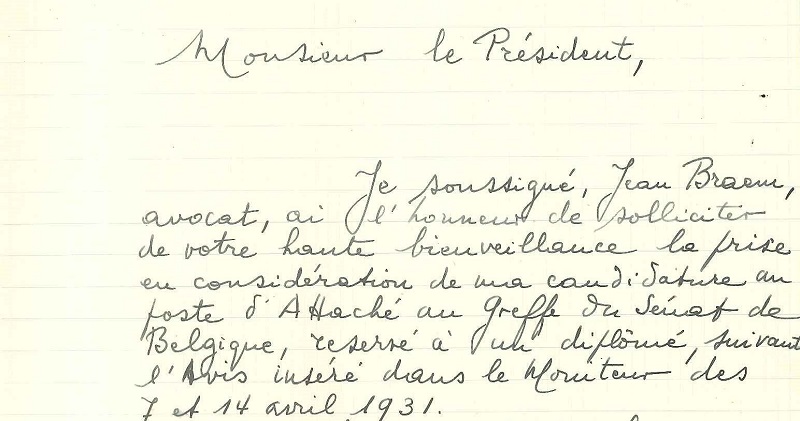 Monsieur le Président,
Je soussigné, Jean Braem,
avocat, ai l'honneur de solliciter
de votre haute bienveillance la prise
en considération de ma candidature au
poste d'Attaché au Greffe du Sénat de
Belgique, reservé à un diplômé, suivant
l'Avis inséré dans le Moniteur des
7 et 14 avril 1931.